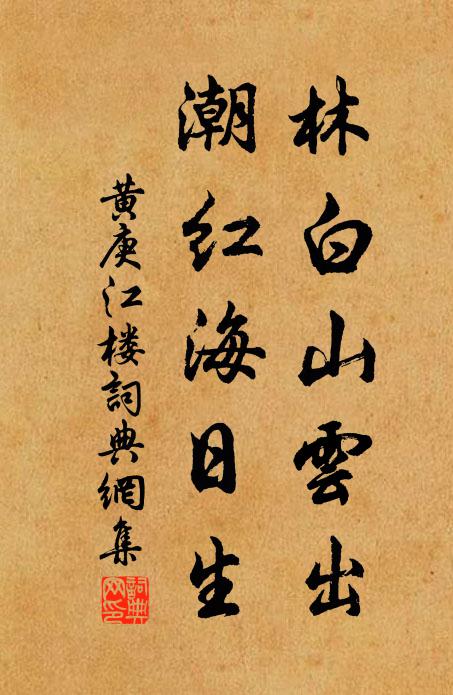 林白山雲出
潮红海日生
黄庚江楼詞典網集
詞典
网印